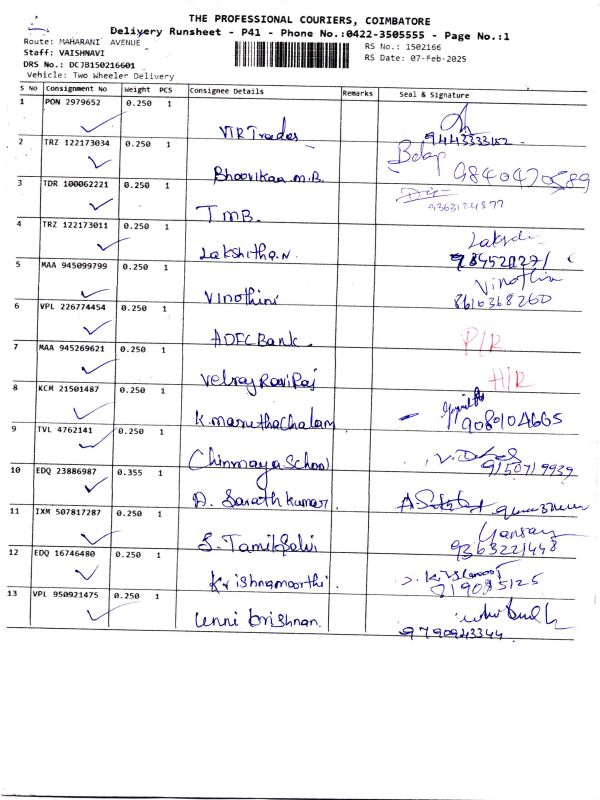 THE PROFESSIONAL COURIERS, COIMBATORE
Delivery Runsheet - P41 - Phone No.:0422-3505555 - Page No.:1
Route: MAHARANI AVENUE
RS No.: 1502166
Staff: VAISHNAVI
RS Date: 07-Feb-2025
DRS No.: DCJB150216601
Vehicle: Two Wheeler Delivery
S No Consignment No Weight PCS Consignee Details Remarks Seal & Signature
1 PON 2979652 0.250 1 VTR Traders
2 TRZ 122173034 0.250 1 Bhoovikaa.m.B. 9840470589
3 TDR 100062221 0.250 1 TMB. 9363124577
4 TRZ 122173011 0.250 1 Lakshitha.N
5 MAA 945099799 0.250 1 Vinothini Vinothini 8610368260
6 VPL 226774454 0.250 1 ADFC Bank. P/R
7 MAA 945269621 0.250 1 Velraj RaviRaj H/R
8 KCM 21501487 0.250 1 K.maruthachalam 9080104665
9 TVL 4762141 0.250 1 Chinmaya School 9150719939
10 EDQ 23886987 0.355 1 D. Sarath kumar.
11 IXM 507817287 0.250 1 S. TamilSelvi 9363221448
12 EDQ 16746480 0.250 1 Krishnamoorthi.
13 VPL 950921475 0.250 1 Unni krishnan. 9790943344